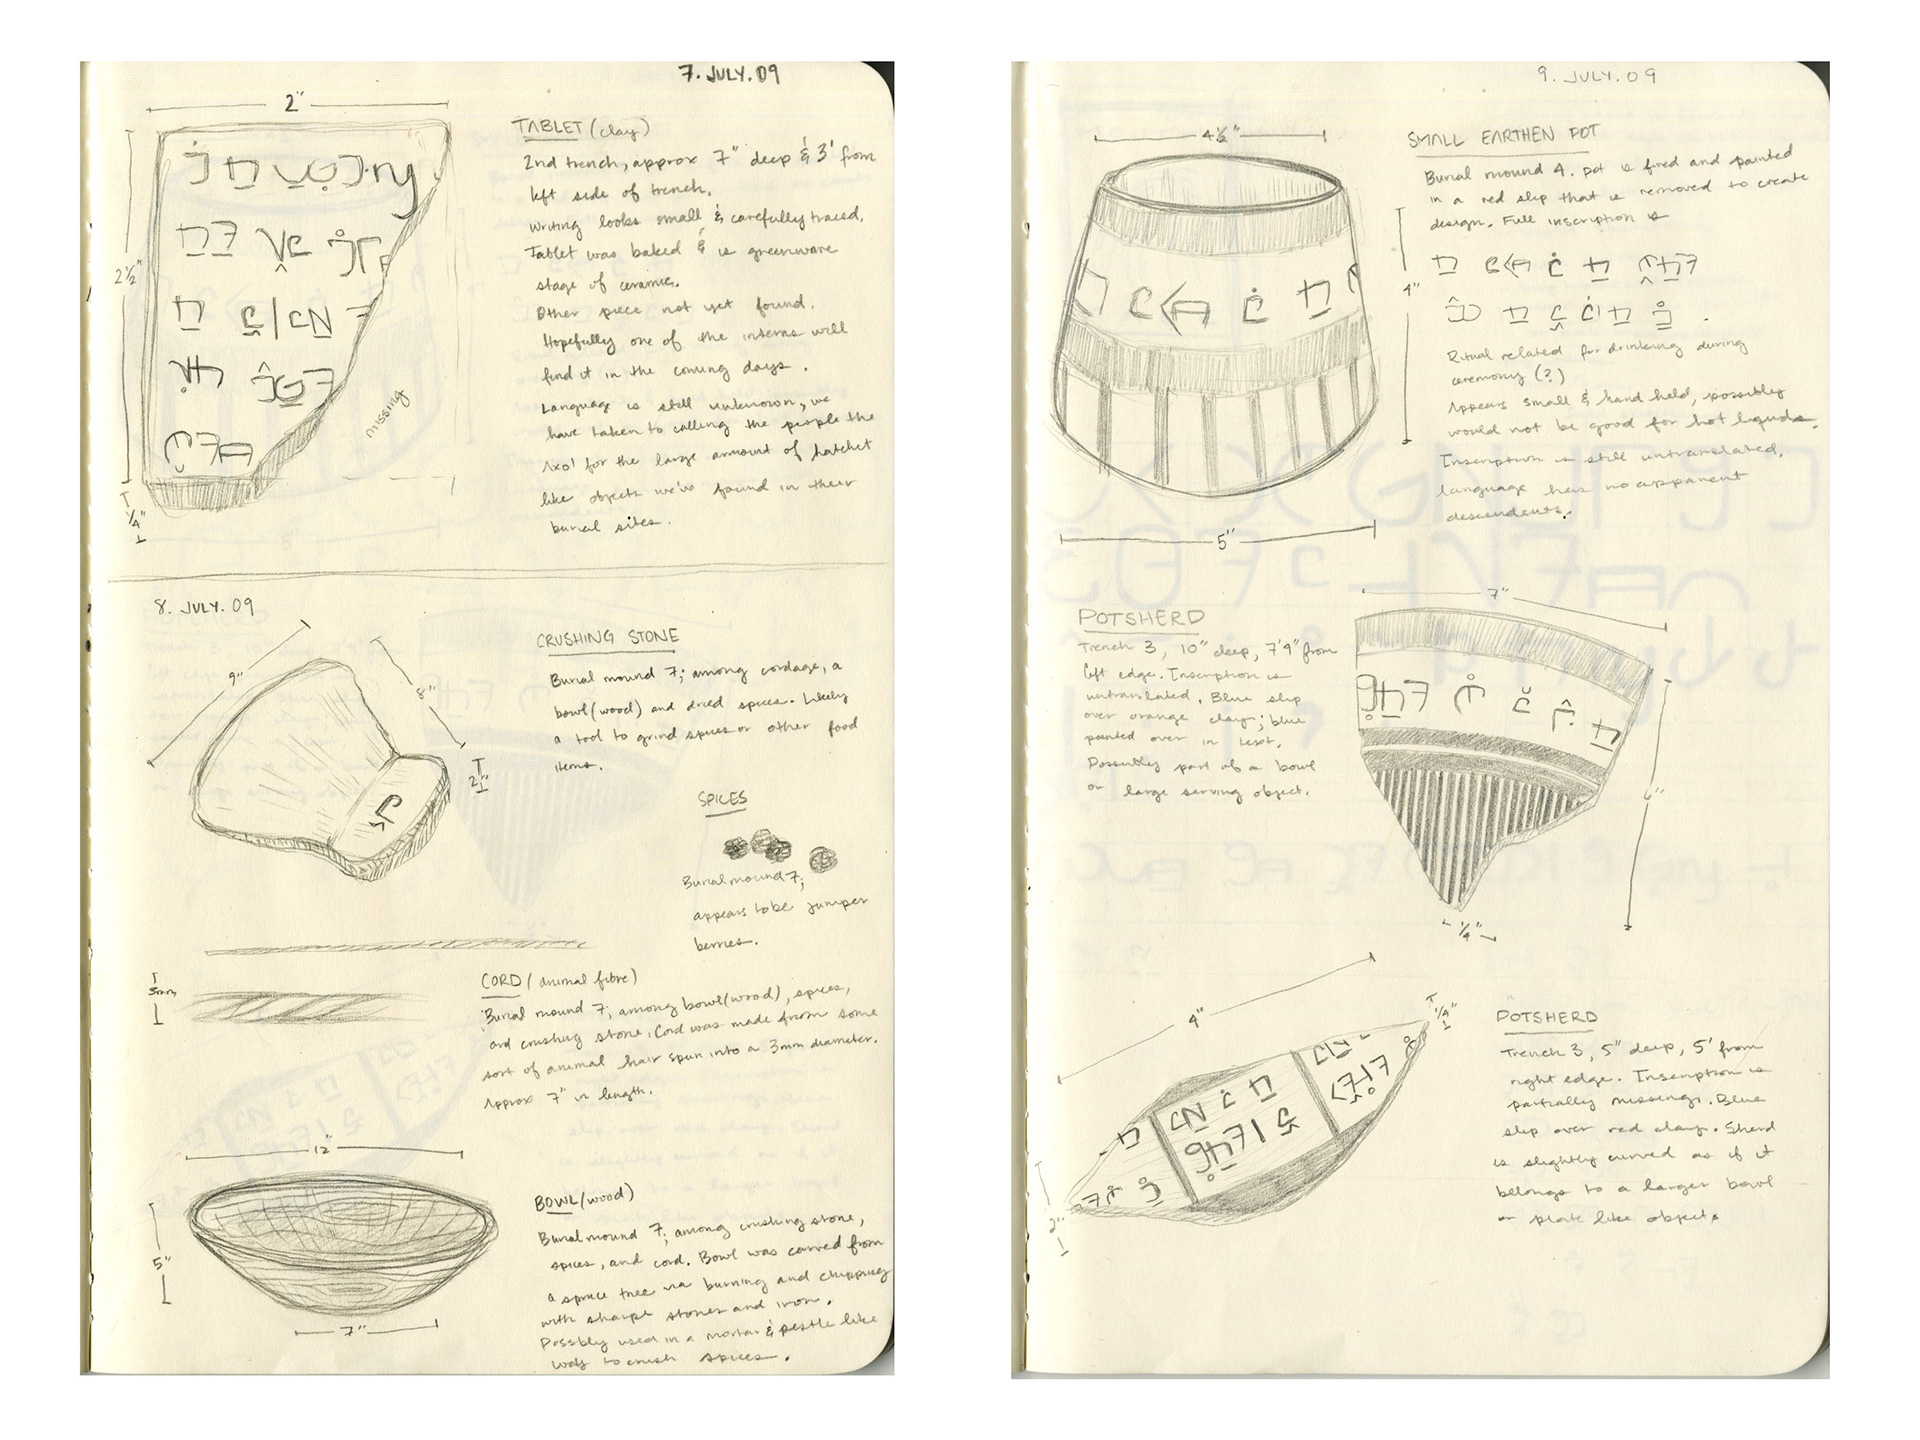 7. JULY. 09
2"
2½"
¼"
missing
TABLET (clay)
2nd trench, approx 7" deep & 3' from
left side of trench.
Writing looks small & carefully traced.
Tablet was baked & is greenware
stage of ceramic.
Other piece not yet found.
Hopefully one of the interns will
find it in the coming days.
Language is still unknown, we
have taken to calling the people the
for the large amount of hatchet
like objects we've found in their
burial sites.
8. JULY. 09
9"
8"
2"
CRUSHING STONE
Burial mound 7; among cordage, a
bowl (wood) and dried spices. Likely
a tool to grind spices or other food
items.
SPICES
Burial mound 7;
appears to be juniper
berries.
3mm
CORD (animal fibre)
Burial mound 7; among bowl (wood), spices,
and crushing stone. Cord was made from some
sort of animal hair spun into a 3mm diameter.
Approx 7" in length.
12"
5"
7"
BOWL (wood)
Burial mound 7; among crushing stone,
spices, and cord. Bowl was carved from
a spruce tree via burning and chipping
with sharpe stones and iron.
Possbly used in a mortar & pestle like
way to crush spices.
9. JULY. 09
4½"
4"
5"
SMALL EARTHEN POT
Burial mound 4. pot is fired and painted
in a red slip that is removed to create
design. Full inscription is
Ritual related for drinking during
ceremony (?)
Appears small & hand held, possibly
would not be good for hot liquids.
Inscription is still untranslated,
language has no apparent
descendents.
POTSHERD
Trench 3, 10" deep, 7'9" from
left edge. Inscription is
untranslated. Blue slip
over orange clay; blue
painted over in text.
Possibly part of a bowl
or large serving object.
7"
6"
¼"
4"
¼"
2"
POTSHERD
Trench 3, 5" deep, 5' from
right edge. Inscription is
partially missing. Blue
slip over red clay. Sherd
is slightly curved as if it
belongs to a larger bowl
or plate like object.